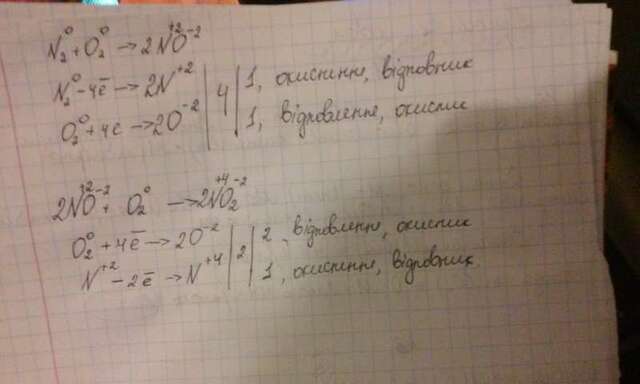 N₂⁰ + O₂⁰ → 2N⁺²O⁻²
N₂⁰ - 4ē → 2N⁺² | 4 | 1, окиснення, відновник
O₂⁰ + 4ē → 2O⁻² | | 1, відновлення, окисник
2N⁺²O⁻² + O₂⁰ → 2N⁺⁴O₂⁻²
O₂⁰ + 4ē → 2O⁻² | 2, відновлення, окисник
N⁺² - 2ē → N⁺⁴ | 2 | 1, окиснення, відновник